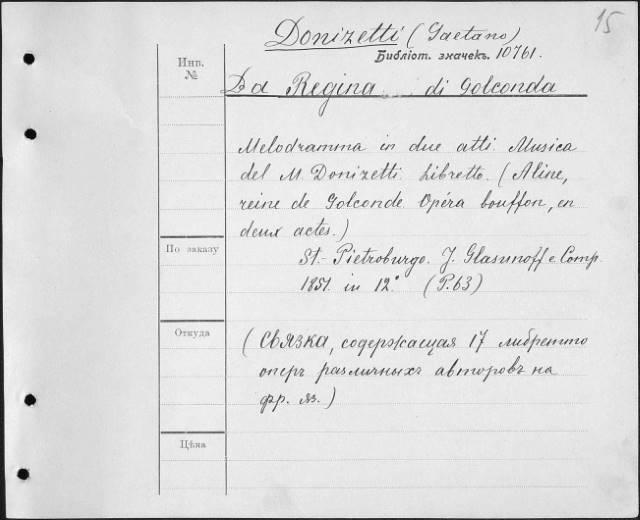 15
Donizetti (Gaetano)
Библіот. значекъ. 10761.
Инв.
№
La Regina di Golconda
Melodramma in due atti. Musica
del M. Donizetti. Libretto. (Aline,
reine de Golconde. Opéra bouffon, en
deux actes.)
По заказу
St.- Pietroburgo. J. Glasunoff e Comp.
1851. in 12° (P. 63)
Откуда
(Связка, содержащая 17 либретто
оперъ различныхъ авторовъ на
фр. яз.)
Цѣна